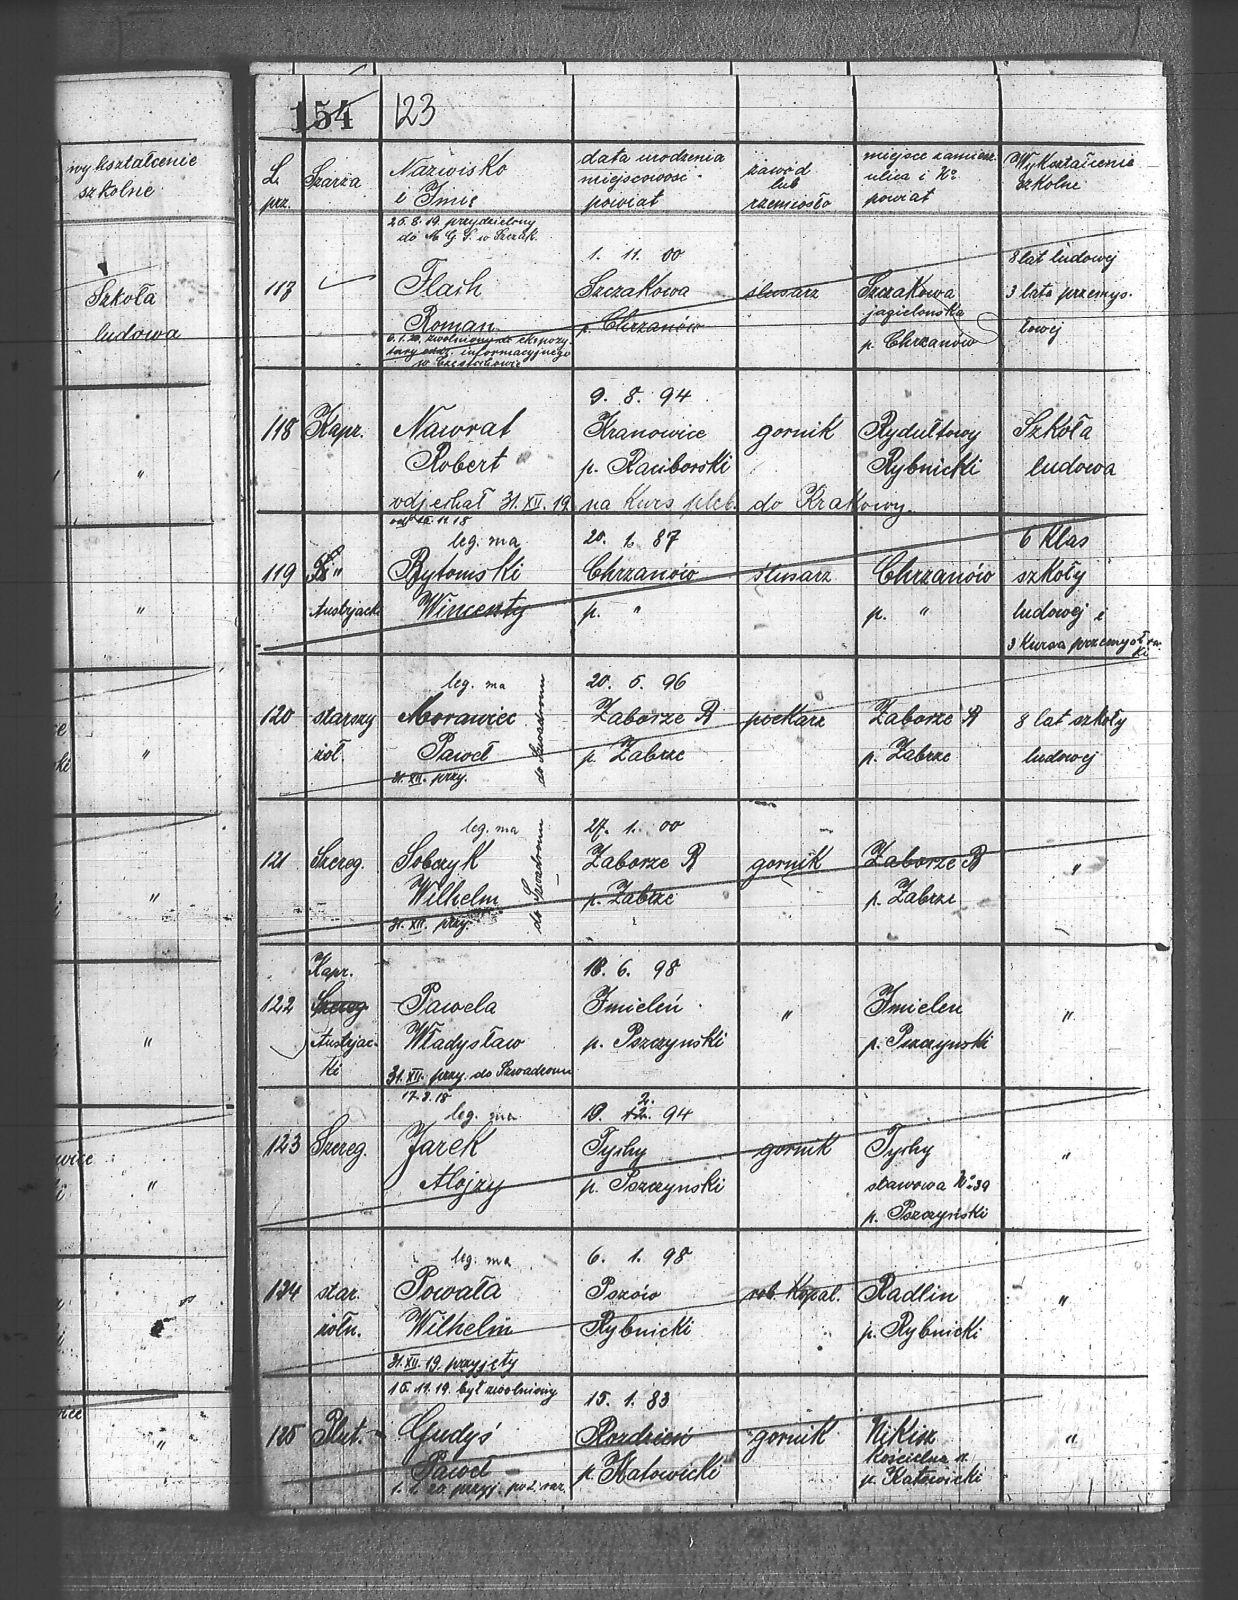 wykształcenie
szkolne
Szkoła
ludowa
"
"
"
"
"
"
"
"
154 123
L. prz.
Szarża
Nazwisko
i Imię
data urodzenia
miejscowość
powiat
zawód
lub
rzemiosło
miejsce zamiesz.
ulica i No
powiat
Wykształcenie
szkolne
25.8.19. przydzielony
do M G S. w Szczak.
117
Flash
Roman
6.1.20. zwolniony do ekspozy-
tury oddz. informacyjnego
w Częstochowie
1. 11. 00
Szczakowa
p. Chrzanów
ślusarz
Szczakowa
jagielońska
p. Chrzanów
8 lat ludowej
3 lata przemys-
łowej
118 Kapr.
Nawrat
Robert
9. 8. 94
Kranowice
p. Raciborski
gornik
Rydułtowy
Rybnicki
Szkoła
ludowa
odjechał 31.XII.19. na Kurs pleb. do Krakowy.
119
Austrjack
leg. ma
Bytomski
Wincenty
20. 1. 87
Chrzanów
p. "
ślusarz
Chrzanów
p. "
6 Klas
szkoły
ludowej i
3 Kursa przemysłow.
120 starszy
żoł.
leg. ma
Morawiec
Paweł
31.XII. przy.
do Szwadronu
20. 6. 96
Zaborze B
p. Zabrze
piekarz
Zaborze B
p. Zabrze
8 lat szkoły
ludowej
121 Szereg.
leg. ma
Sobczyk
Wilhelm
31.XII. przy.
do Szwadronu
27. 1. 00
Zaborze B
p. Zabrze
gornik
Zaborze B
p. Zabrze
"
Kapr.
122 Szereg
Austrjac-
ki
Pawela
Władysław
31.XII. przy. do Szwadronu
18. 6. 98
Imieleń
p. Pszczynski
"
Imielen
p. Pszczynski
"
123 Szereg.
17.2.18
leg. ma
Jarek
Alojzy
2.
19. 12. 94
Tychy
p. Pszczynski
gornik
Tychy
stawowa No 39
p. Pszczyński
"
124 star.
żołn.
leg. ma
Powała
Wilhelm
31.XII.19. przyjęty
6. 1. 98
Pszów
Rybnicki
rob. Kopal.
Radlin
p. Rybnicki
"
125 Plut.
15.11.19. był zwolniony
Gudyś
Paweł
1.1.20. przyj. po 2. raz.
15. 1. 83
Rozdzień
p. Katowicki
gornik
Nikisz
Kościelna
p. Katowicki
"